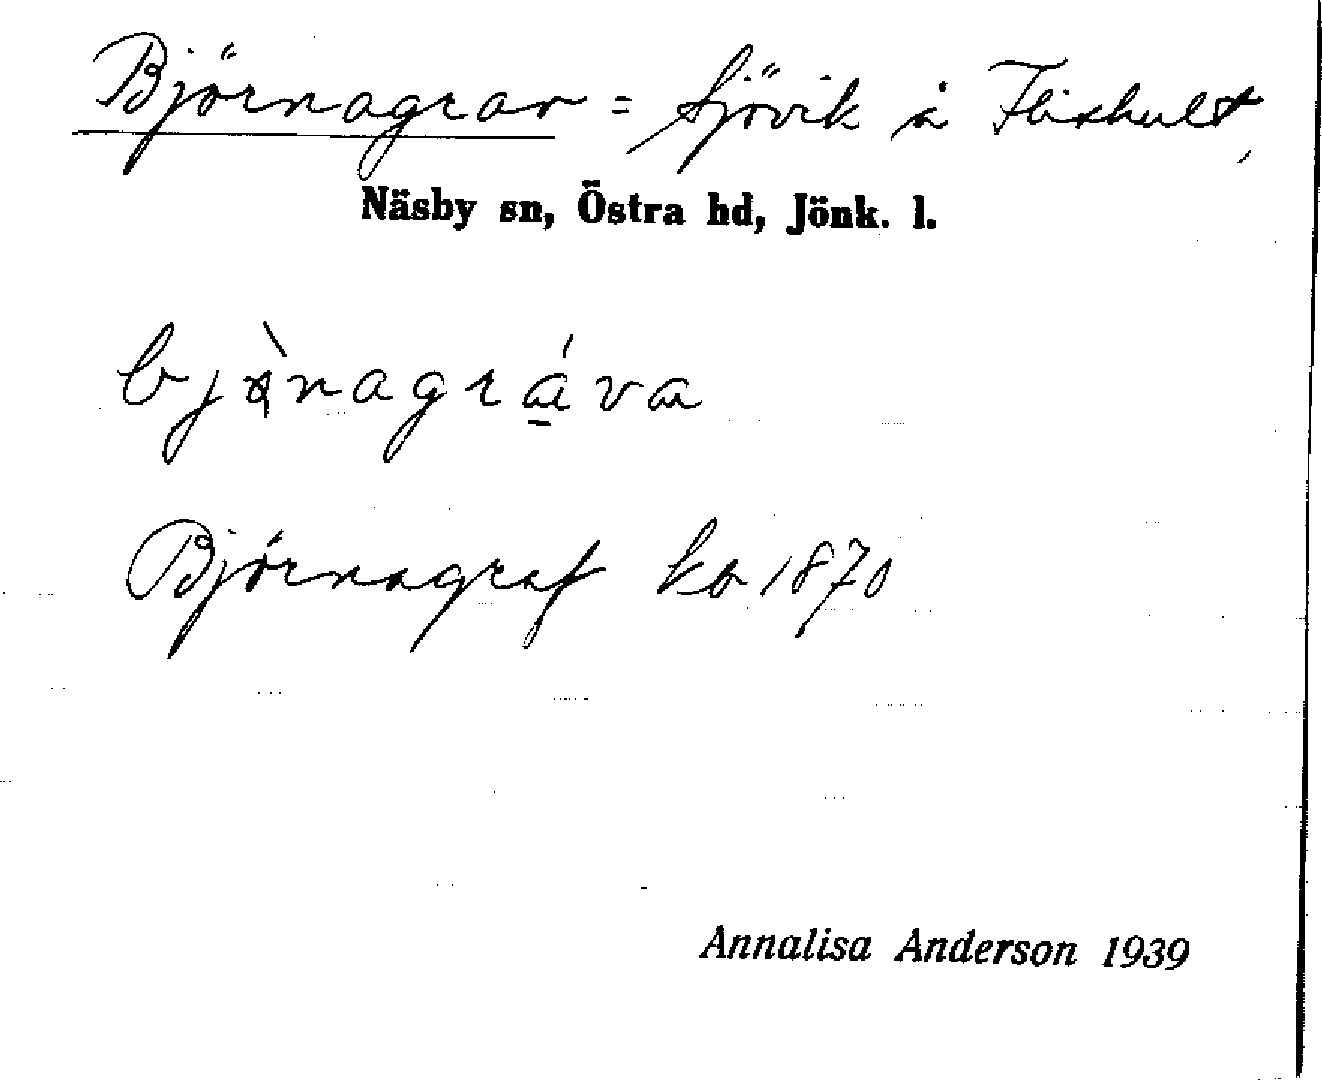 Björnagrav = Sjövik å Flishult,
Näsby sn, Östra hd, Jönk. l.
Björnagraf ka 1870
Annalisa Anderson 1939